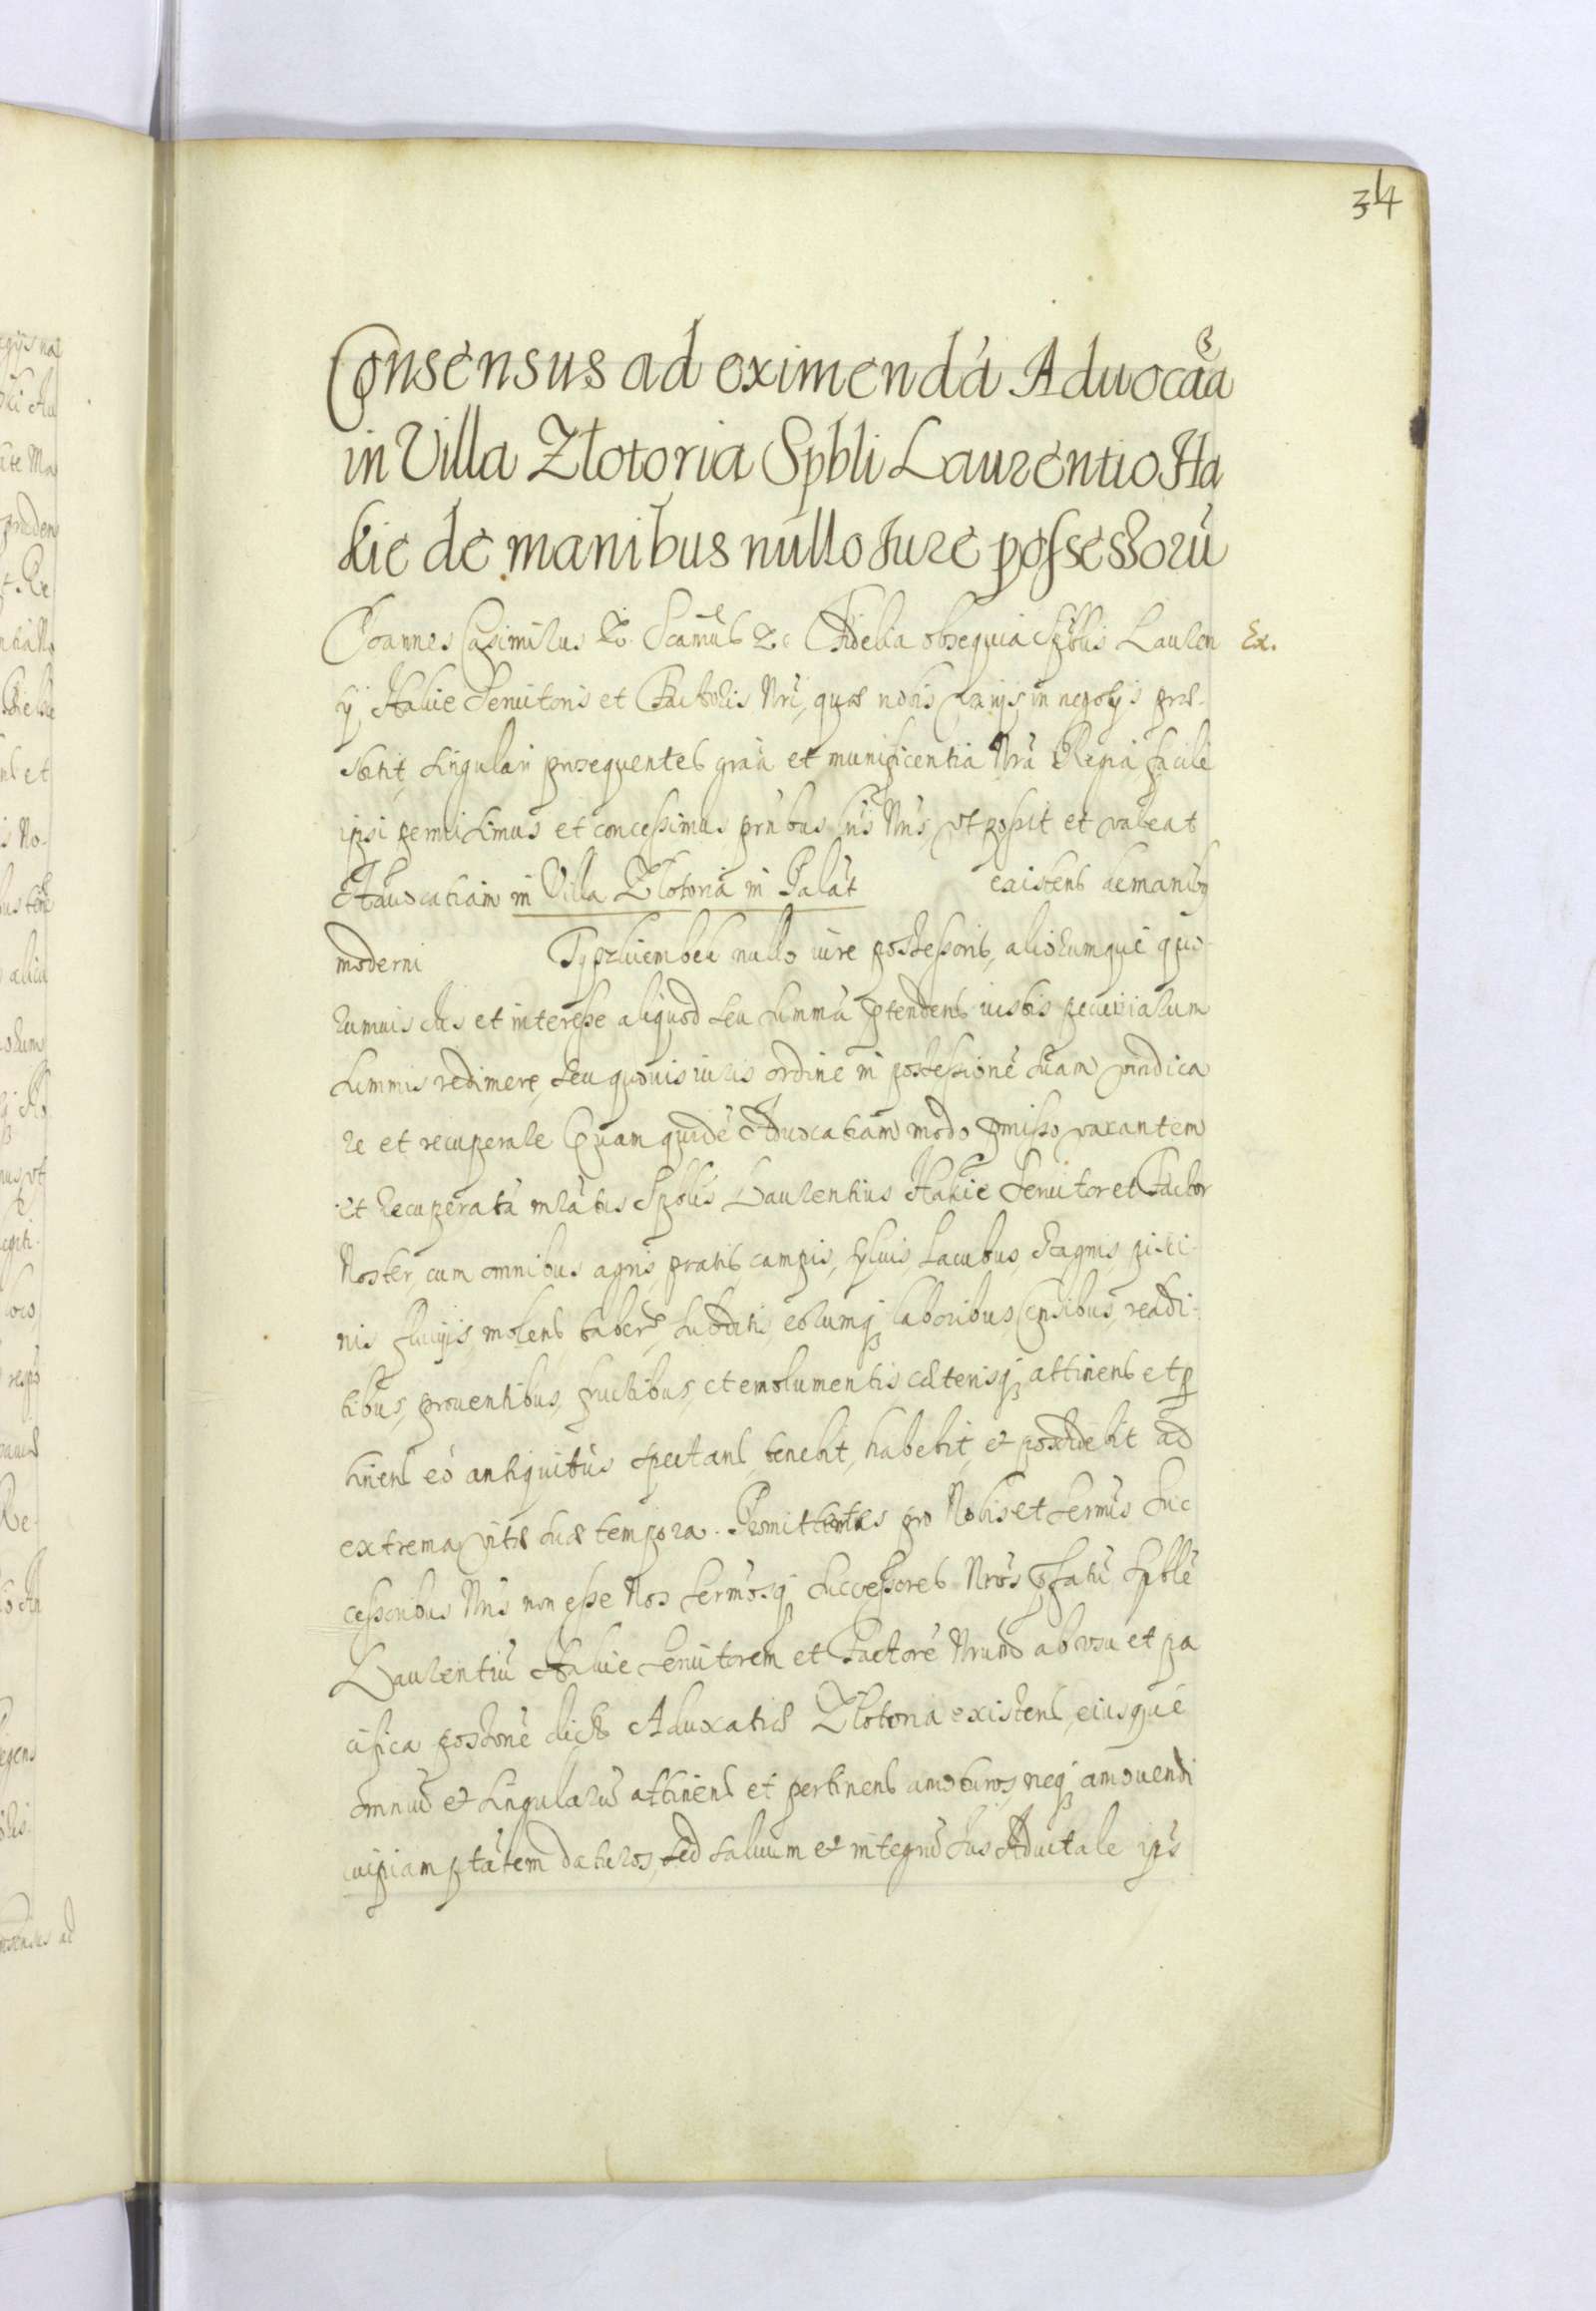 34
Consensus ad eximendā Aduocaã
in Villa Zlotoria Spbli Laurentio Ha
kie de manibus nullo Iure possessorū
Joannes Casimirus &c. &c. Fidelia obsequia Spblis Lauren
Ex.
ty Hakie Seruitoris et Factoris Nri, quæ nobis varijs in negotijs præ-
stitit, singulari prosequentes grãa et munificentia Nrã Regia facile
ipsi permisimus et concessimus prñtibus lris Nris, vt possit et valeat
Aduocatiam in Villa Zlotoria in Palat existens de manibq
moderni nullo iure possessoris, aliorumque quo-
rumuis Ius et interesse aliquod seu summā ptendens iustis pecuniarum
summis redimere, seu quouis iuris ordine in possessionē suam vindica
re et recuperare Quam quidē Aduocatiam modo pmisso vacantem
et recuperatā Spblis Laurentius Hakie Seruitor et Factor
Noster, cum omnibus agris, pratis, campis, syluis, lacubus, stagnis, pisci-
nis fluuijs, molend, tabern, subditis, eorumq laboribus, censibus, reddi-
tibus, prouentibus, fructibus, et emolumentis cæterisq attinens et p
tinens eò antiquitùs spectans, tenebit, habebit, et possidebit ad
extrema vitæ suæ tempora. Promittentes pro Nobis et Sermis Suc
cessoribus Nris non esse Nos Sermosq Successores Nros pfatū Spblē
Laurentiū Hakie Seruitorem et Factorē Nrum ab vsu et pa
cifica possonē dictæ Aduocatiæ Zlotoria existens, eiusque
omniū et singularū attinens et pertinens amoturos, neq amouendi
cuipiam ptātem daturos, sed saluum et integrū Ius Aduitale ipsi